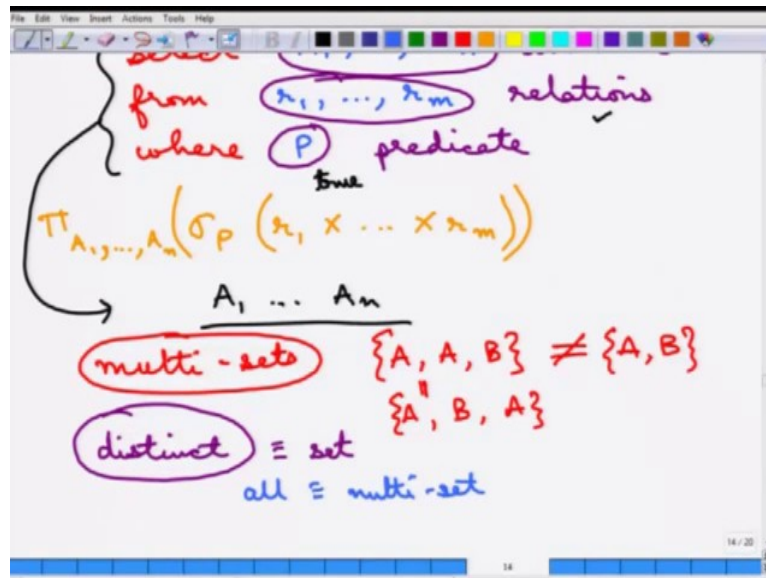 File Edit View Insert Actions Tools Help
select
from r₁, ..., rₘ relations
where P predicate
true
π A₁, ..., Aₙ (σ P (r₁ × ... × rₘ))
A₁ ... Aₙ
multi-sets {A, A, B} ≠ {A, B}
{A, B, A}
distinct ≡ set
all ≡ multi-set
14 / 20
14